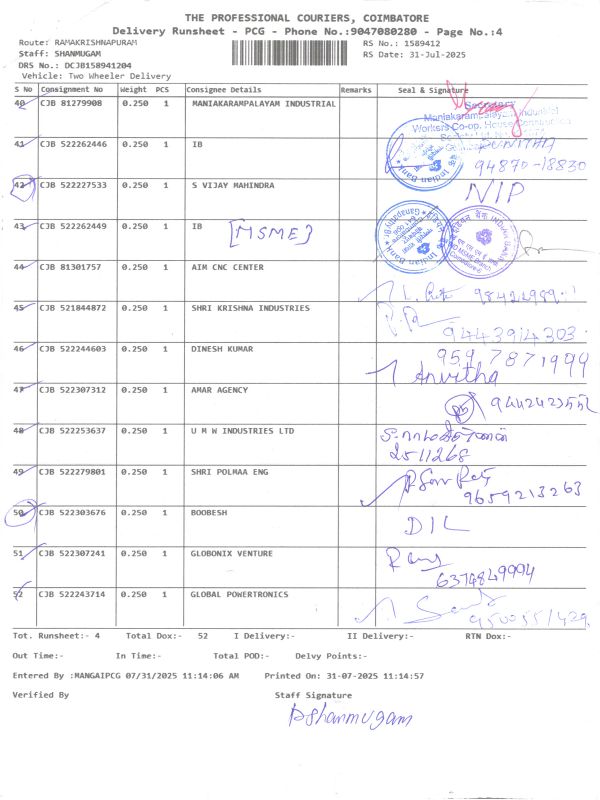 THE PROFESSIONAL COURIERS, COIMBATORE
Delivery Runsheet - PCG - Phone No.:9047080280 - Page No.:4
Route: RAMAKRISHNAPURAM RS No.: 1589412
Staff: SHANMUGAM RS Date: 31-Jul-2025
DRS No.: DCJB158941204
Vehicle: Two Wheeler Delivery
S No Consignment No Weight PCS Consignee Details Remarks Seal & Signature
40 CJB 81279908 0.250 1 MANIAKARAMPALAYAM INDUSTRIAL
Secretary
Maniakarampalayam Industrial
Workers Co-op. House Construction
41 CJB 522262446 0.250 1 IB Indian Bank PUNITHA
94870-18830
42 CJB 522227533 0.250 1 S VIJAY MAHINDRA NIP
43 CJB 522262449 0.250 1 IB [MSME] Indian Bank INDIAN BANK
44 CJB 81301757 0.250 1 AIM CNC CENTER
45 CJB 521844872 0.250 1 SHRI KRISHNA INDUSTRIES
9443914303
46 CJB 522244603 0.250 1 DINESH KUMAR 959 7871999
Anvitha
47 CJB 522307312 0.250 1 AMAR AGENCY
48 CJB 522253637 0.250 1 U M W INDUSTRIES LTD
2511268
49 CJB 522279801 0.250 1 SHRI POLMAA ENG
9659213263
50 CJB 522303676 0.250 1 BOOBESH DIL
51 CJB 522307241 0.250 1 GLOBONIX VENTURE
6374849994
52 CJB 522243714 0.250 1 GLOBAL POWERTRONICS
Tot. Runsheet:- 4 Total Dox:- 52 I Delivery:- II Delivery:- RTN Dox:-
Out Time:- In Time:- Total POD:- Delvy Points:-
Entered By :MANGAIPCG 07/31/2025 11:14:06 AM Printed On: 31-07-2025 11:14:57
Verified By Staff Signature
Pshanmugam